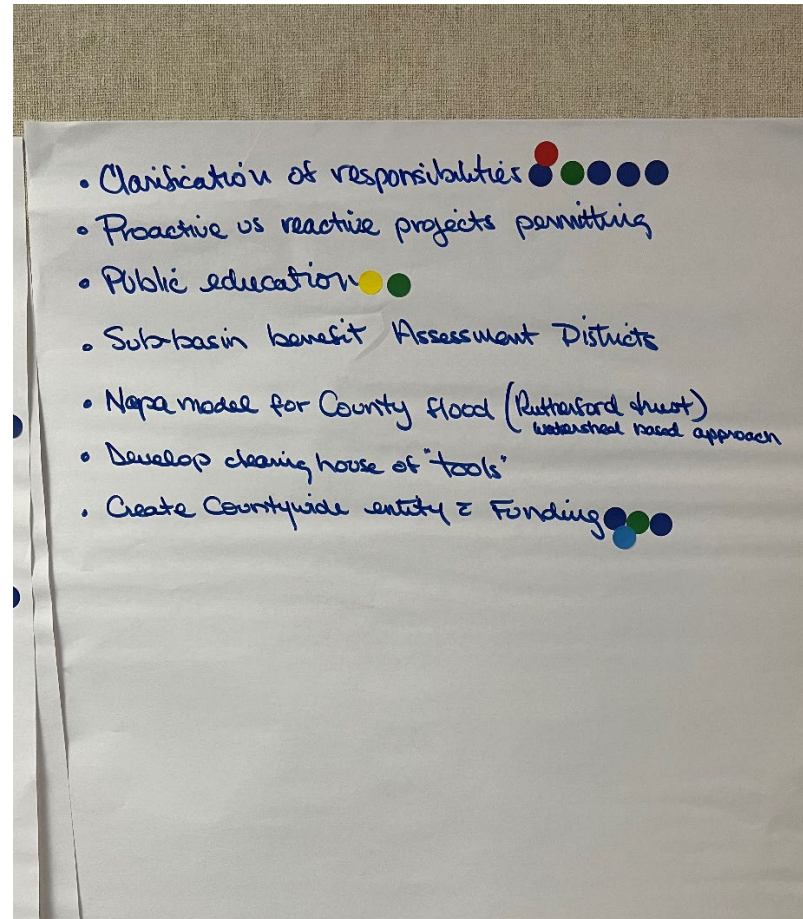 • Clarification of responsibilities
• Proactive vs reactive projects permitting
• Public education
• Sub-basin benefit Assessment Districts
• Napa model for County flood (Rutherford trust)
watershed based approach
• Develop clearing house of "tools"
• Create Countywide entity Funding